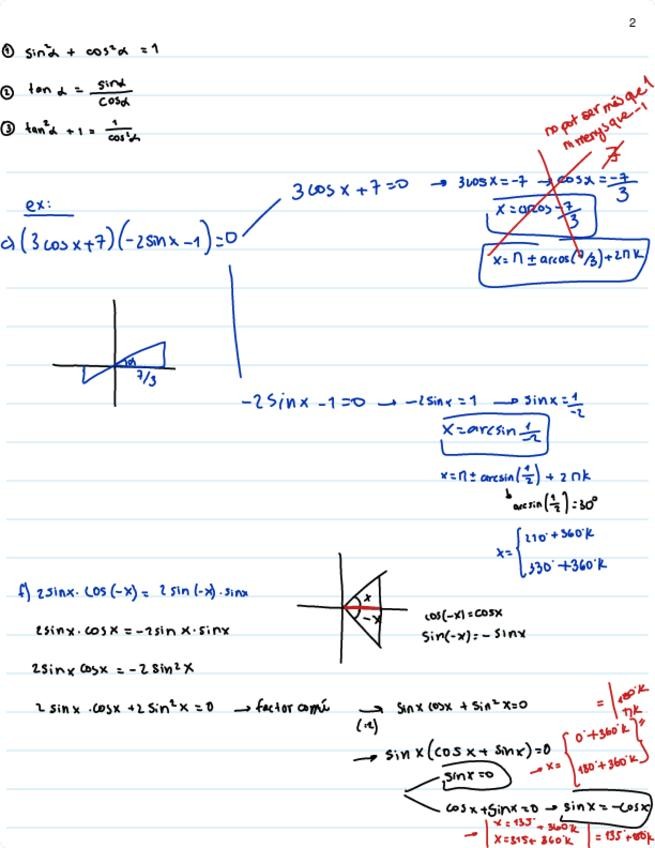 2
① sin²α + cos²α = 1
② tan α = sinα/cosα
③ tan²α + 1 = 1/cos²α
no pot ser més que 1
ni menys que -1
ex:
c) (3cosx+7)(-2sinx-1)=0
3cosx+7=0 → 3cosx=-7 → cosx=-7/3
x=arcos -7/3
x=π±arcos(7/3)+2πk
α
7/3
-2sinx-1=0 → -2sinx=1 → sinx=1/-2
x=arcsin 1/-2
x=π±arcsin(1/2)+2πk
arcsin(1/2)=30°
x={210°+360°k
330°+360°k
f) 2sinx·cos(-x)=2sin(-x)·sinx
x
-x
cos(-x)=cosx
sin(-x)=-sinx
2sinx·cosx=-2sinx·sinx
2sinxcosx=-2sin²x
2sinx·cosx+2sin²x=0 → factor comú → sinxcosx+sin²x=0
(:2)
→ sinx(cosx+sinx)=0
sinx=0 → x={0°+360°k
180°+360°k} = |180°k
πk
cosx+sinx=0 → sinx=-cosx
→ |x=135°+360°k
x=315+360°k| = 135°+180k